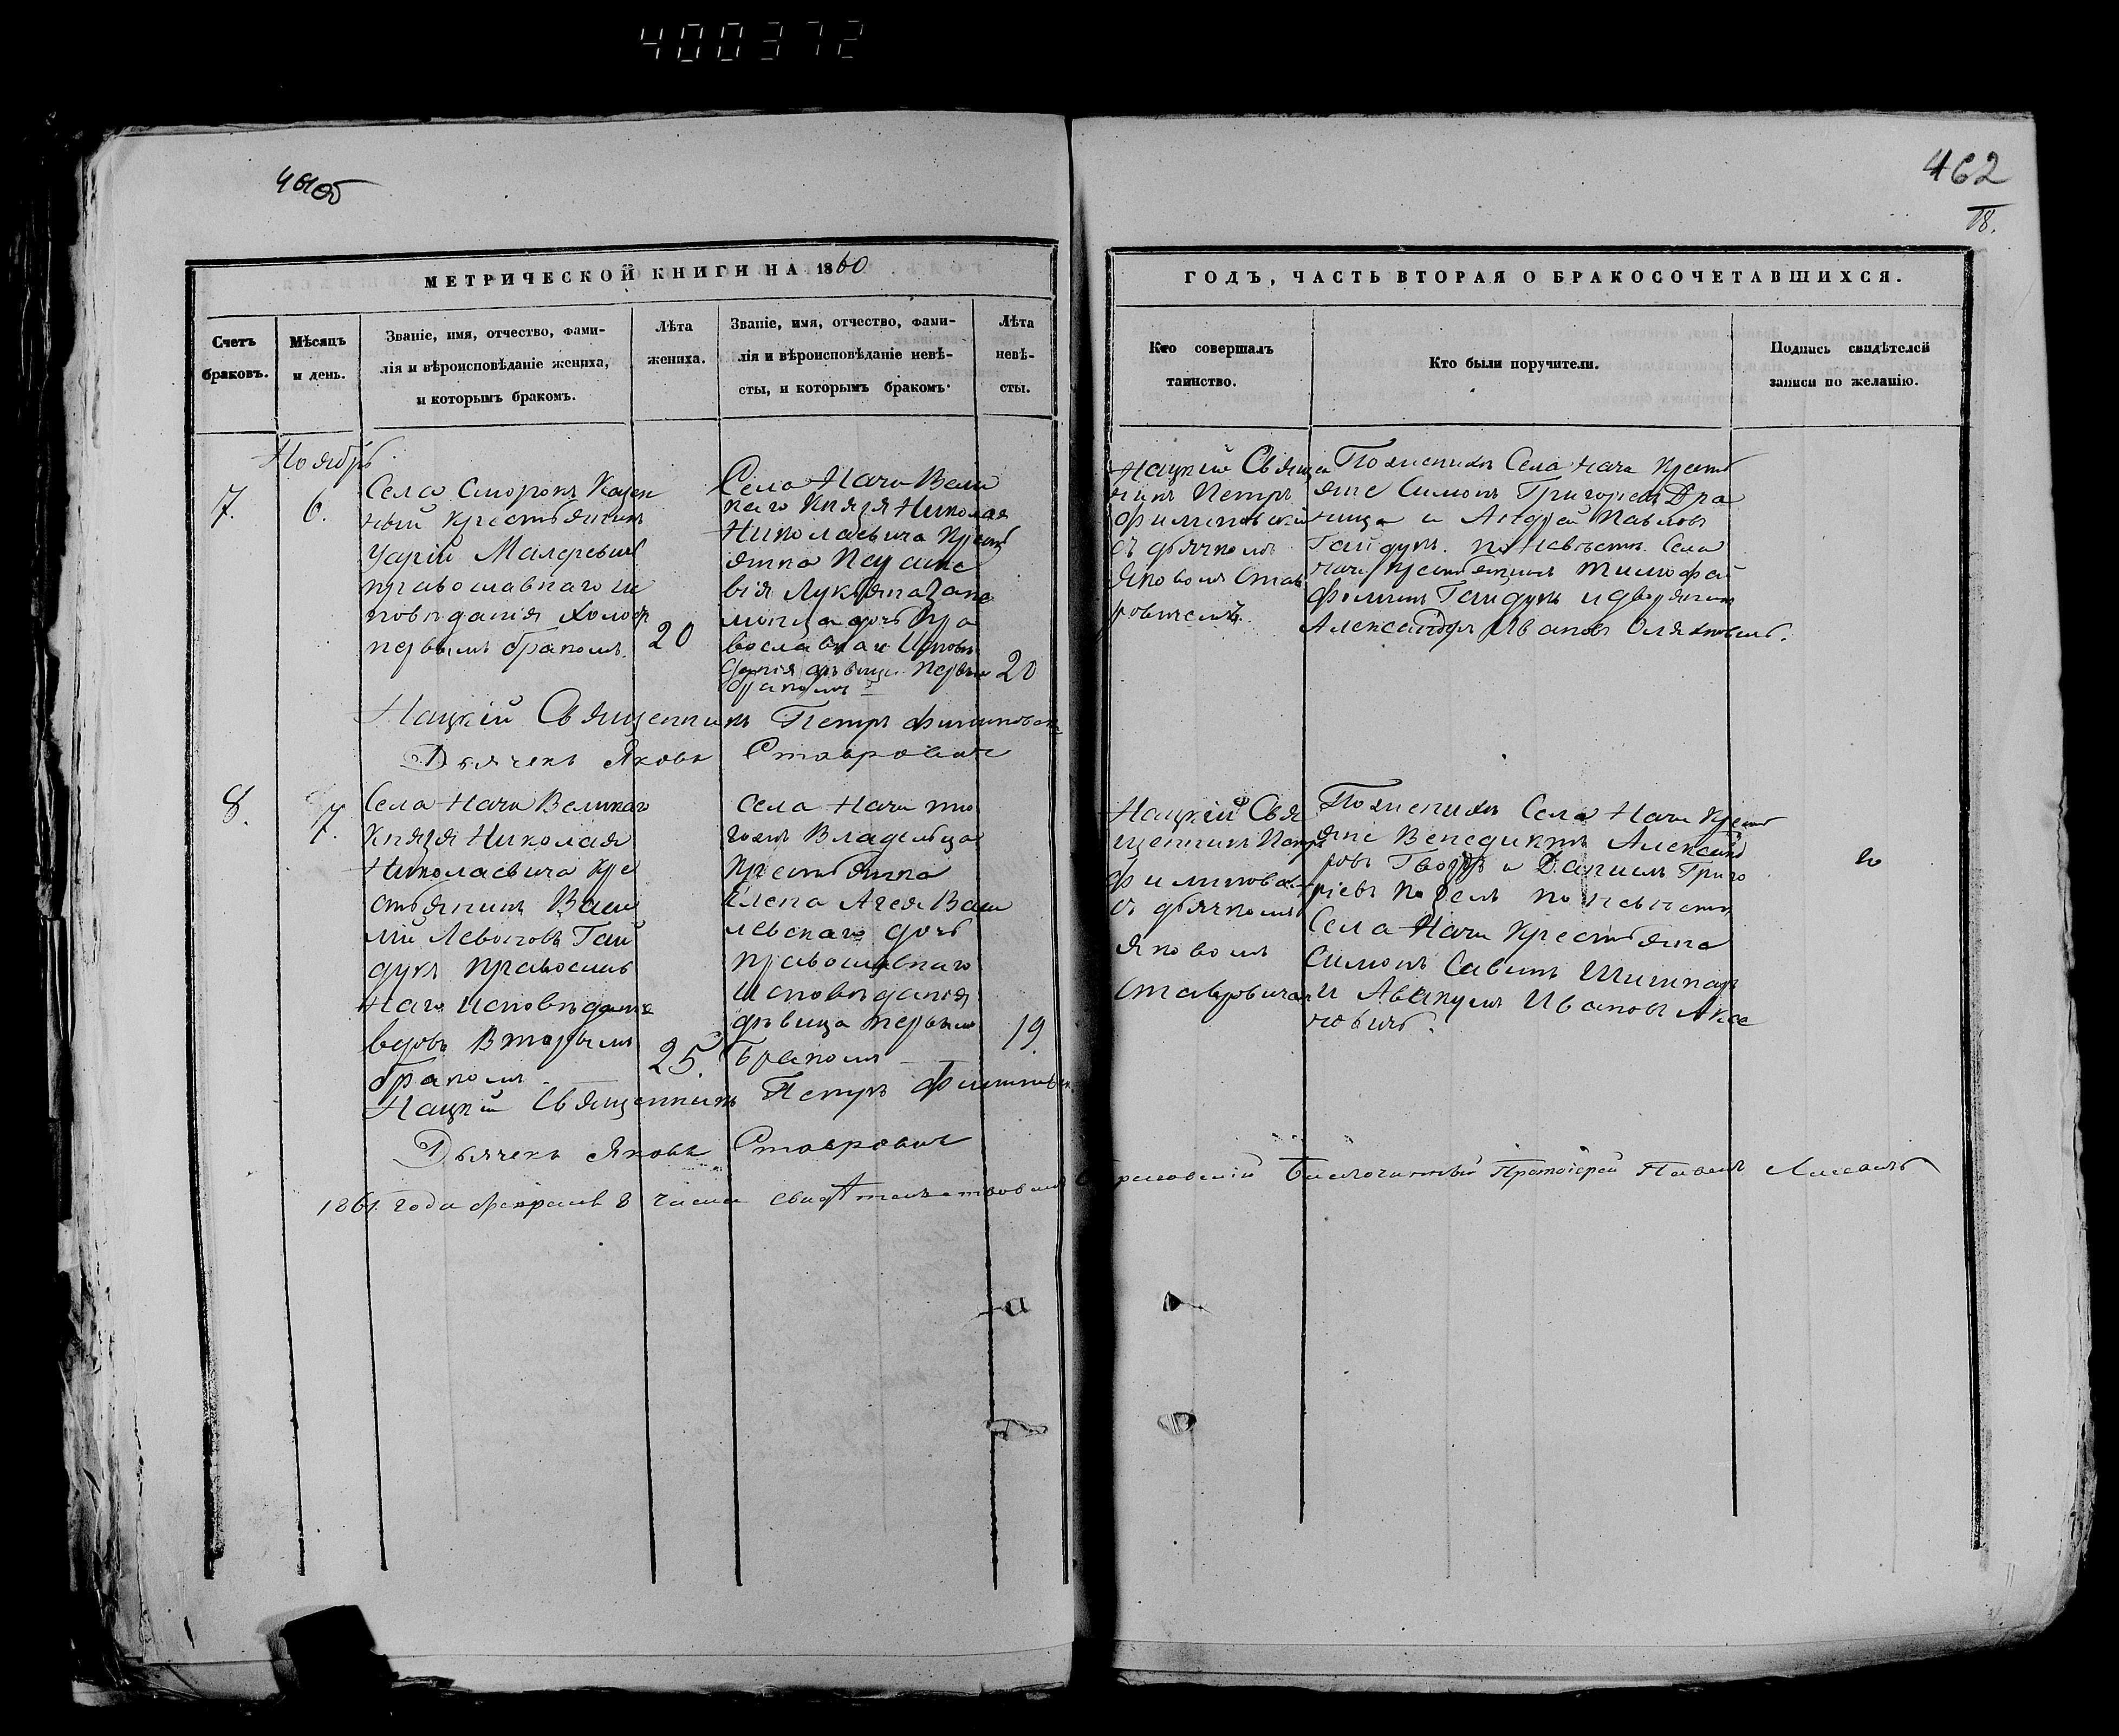 400372
461об
462
18.
МЕТРИЧЕСКОЙ КНИГИ НА 1860
ГОДЪ, ЧАСТЬ ВТОРАЯ О БРАКОСОЧЕТАВШИХСЯ.
Счетъ
браковъ.
Мѣсяцъ
и день.
Званіе, имя, отчество, фами-
лія и вѣроисповѣданіе жениха,
и которымъ бракомъ.
Лѣта
жениха.
Званіе, имя, отчество, фами-
лія и вѣроисповѣданіе невѣ-
сты, и которымъ бракомъ.
Лѣта
невѣ-
сты.
Кто совершалъ
таинство.
Кто были поручители.
Подпись свидѣтелей
записи по желанію.
Ноябрь
7.
6.
Села Казен
ный крестьянинъ
православнаго ис
повѣданія холост
первымъ бракомъ.
20
Села Начи Вели
каго Князя Николая
Николаевича крест
янка
вія Лукьяна
дочь Пра
вославнаго Исповѣ
данія дѣвица первым
бракомъ
20
Нацкій Свяще
никъ Петръ
Филиповскій
съ дьячкомъ
Яковомъ Став
ровичемъ.
По женихѣ Села Начи Крест
яне Симонъ Григорьевъ Дра
ница и Андрей Павловъ
Гайдукъ. по невѣстѣ Села
Начи крестьянинъ Тимофей
Фоминъ Гайдукъ и дворянин
Александръ Ивановъ
Нацкій Священникъ Петръ Филиповскі
Дьячекъ Яковъ Ставровичъ
8.
7.
Села Начи Великаго
Князя Николая
Николаевича кре
стьянинъ Васи
лій Леоновъ Гай
дукъ православ
наго исповѣданія
вдовъ вторымъ
бракомъ
25.
Села Начи то
гожъ Владельца
крестьянка
Елена Васи
левскаго дочь
православнаго
исповѣданія
дѣвица первымъ
бракомъ
19.
Нацкій Свя
щенникъ Петръ
Филиповскі
съ дьячкомъ
Яковомъ
Ставровичемъ
По женихѣ Села Начи Крест
яне Венедиктъ Александ
ровъ и Даніилъ Григо
ріевъ по невѣстѣ
Села Начи Крестьяне
Симонъ Савинъ
и Авакумъ Ивановъ
Нацкій Священникъ Петръ Филиповск
Дьячекъ Яковъ Ставровичъ
1861 года февраля 8 числа свидѣтельствовалъ Благочинный Протоіерей Павелъ